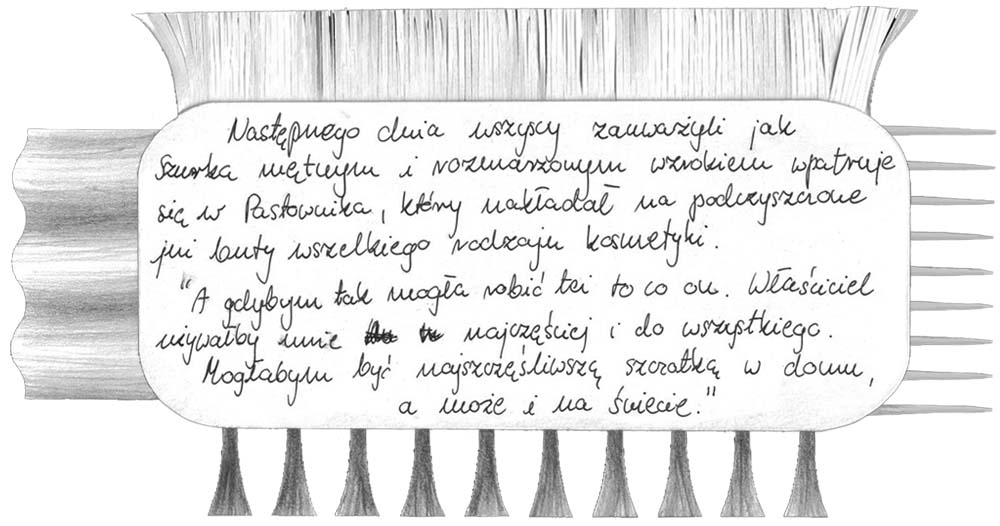 Następnego dnia wszyscy zauważyli jak
Szurka mętnym i rozmarzonym wzrokiem wpatruje
się w Pastownika, który nakładał na podczyszczone
już buty wszelkiego rodzaju kosmetyki.
"A gdybym tak mogła robić też to co on. Właściciel
używałby mnie najczęściej i do wszystkiego.
Mogłabym być najszczęśliwszą szczotką w domu,
a może i na świecie."